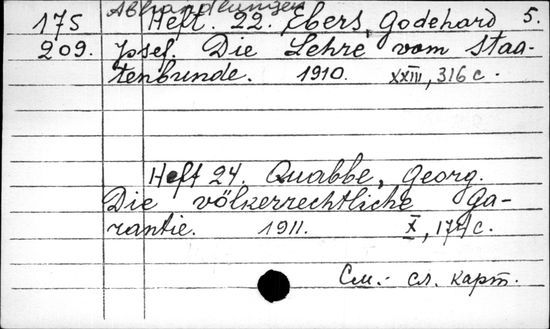 Abhandlungen 5.
175 Heft. 22. Ebers, Godehard
209. Josef. Die Lehre vom Staa-
tenbunde. 1910. XXIII, 316 c.
Heft 24. Quabbe, Georg.
Die völkerrechtliche Ga-
rantie. 1911. X, 174 c.
См.- сл. карт.